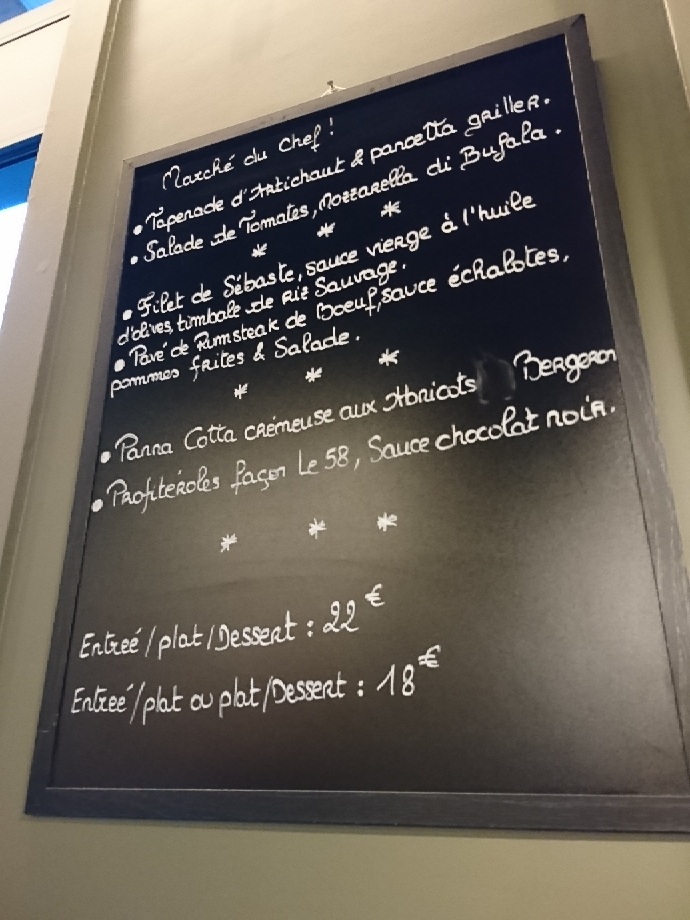 Marché du Chef !
• Tapenade d'Artichaut & pancetta griller.
• Salade de Tomates, Mozzarella di Bufala.
* * *
• Filet de Sébaste, sauce vierge à l'huile
d'olives, timbale de Riz Sauvage.
• Pavé de Rumsteak de Boeuf, sauce échalotes,
pommes frites & Salade.
* * *
• Panna Cotta crémeuse aux Abricots Bergeron
• Profiteroles façon Le 58, Sauce chocolat noir.
* * *
Entreé / plat / Dessert : 22 €
Entreé / plat ou plat / Dessert : 18 €